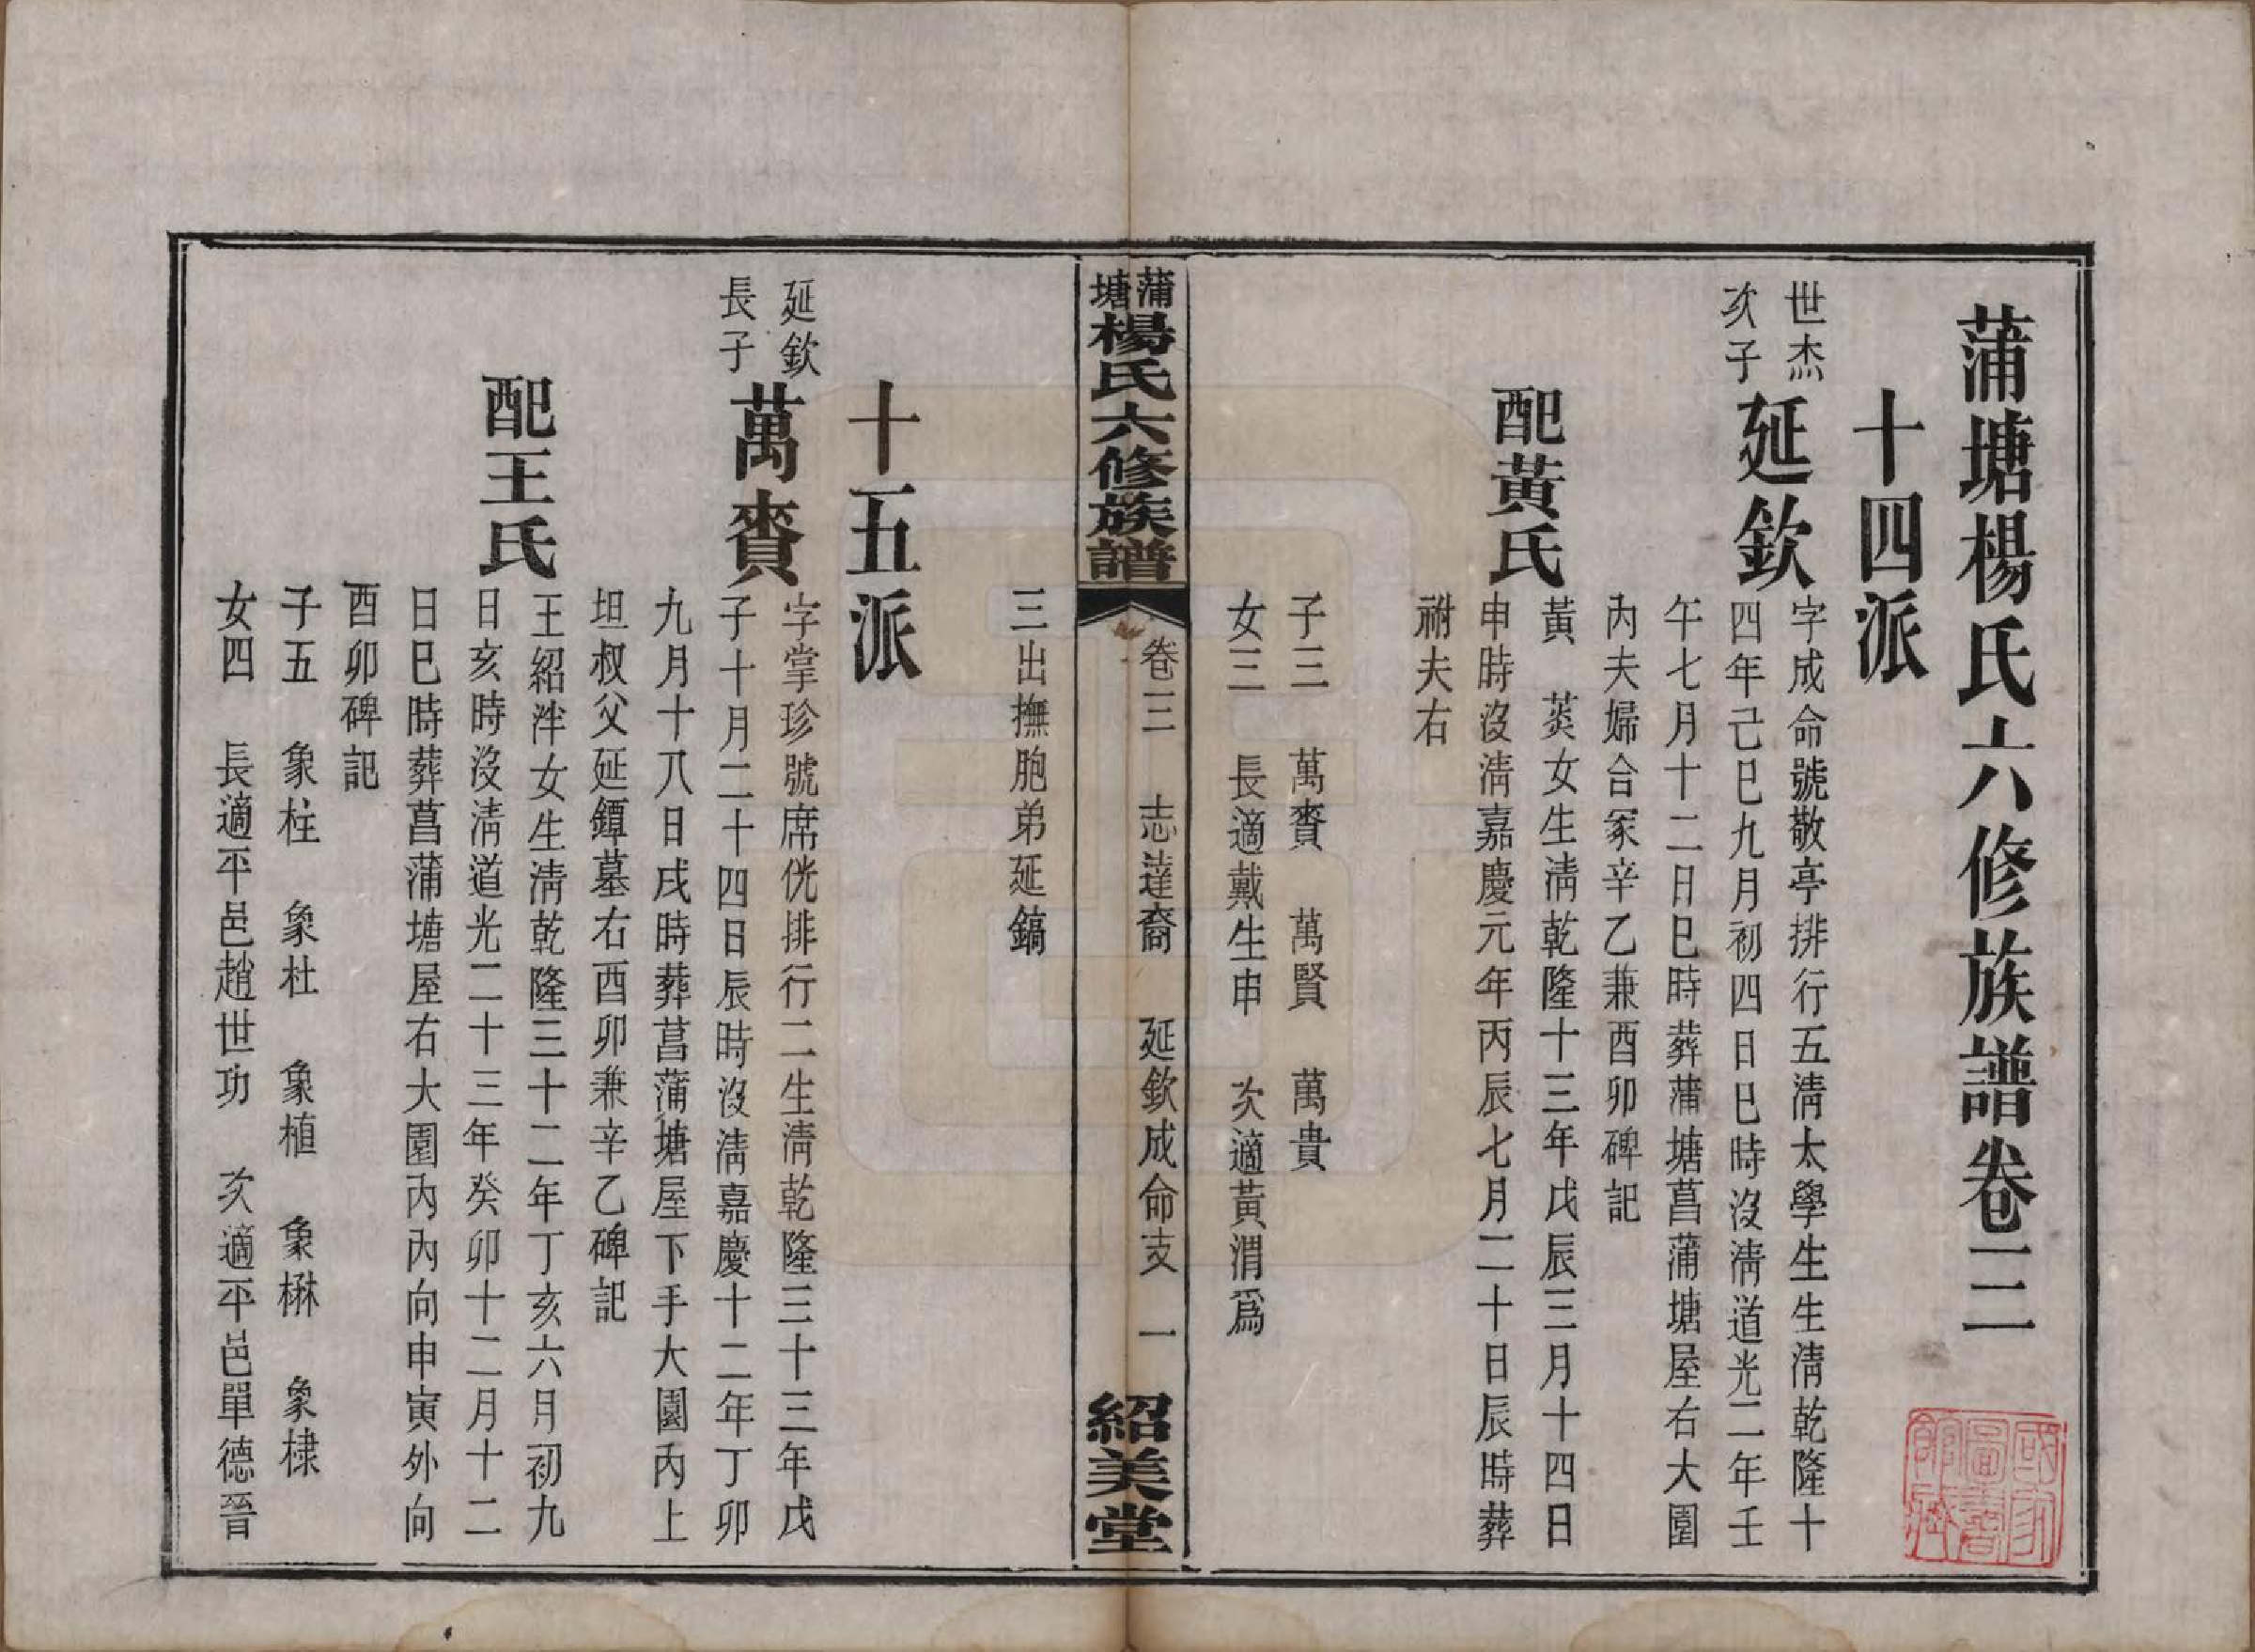 蒲塘楊氏六修族譜卷三
十四派
世杰次子
延欽
字成命號敬亭排行五淸太學生生淸乾隆十
四年己巳九月初四日巳時沒淸道光二年壬
午七月十二日巳時葬蒲塘菖蒲塘屋右大園
內夫婦合冢辛乙兼酉卯碑記
配黃氏
黃 英女生淸乾隆十三年戊辰三月十四日
申時沒淸嘉慶元年丙辰七月二十日辰時葬
祔夫右
子三 萬賚 萬賢 萬貴
女三 長適戴生申 次適黃渭爲
蒲塘楊氏六修族譜
卷三 志達裔 延欽成命支 一
紹美堂
三出撫胞弟延鎬
十五派
延欽長子
萬賚
字掌珍號席侊排行二生淸乾隆三十三年戊
子十月二十四日辰時沒淸嘉慶十二年丁卯
九月十八日戌時葬菖蒲塘屋下手大園內上
坦叔父延鐔墓右酉卯兼辛乙碑記
配王氏
王紹泮女生淸乾隆三十二年丁亥六月初九
日亥時沒淸道光二十三年癸卯十二月十二
日巳時葬菖蒲塘屋右大園內內向申寅外向
酉卯碑記
子五 象柱 象杜 象植 象楙 象棣
女四 長適平邑趙世功 次適平邑單德晉
國家圖書館藏